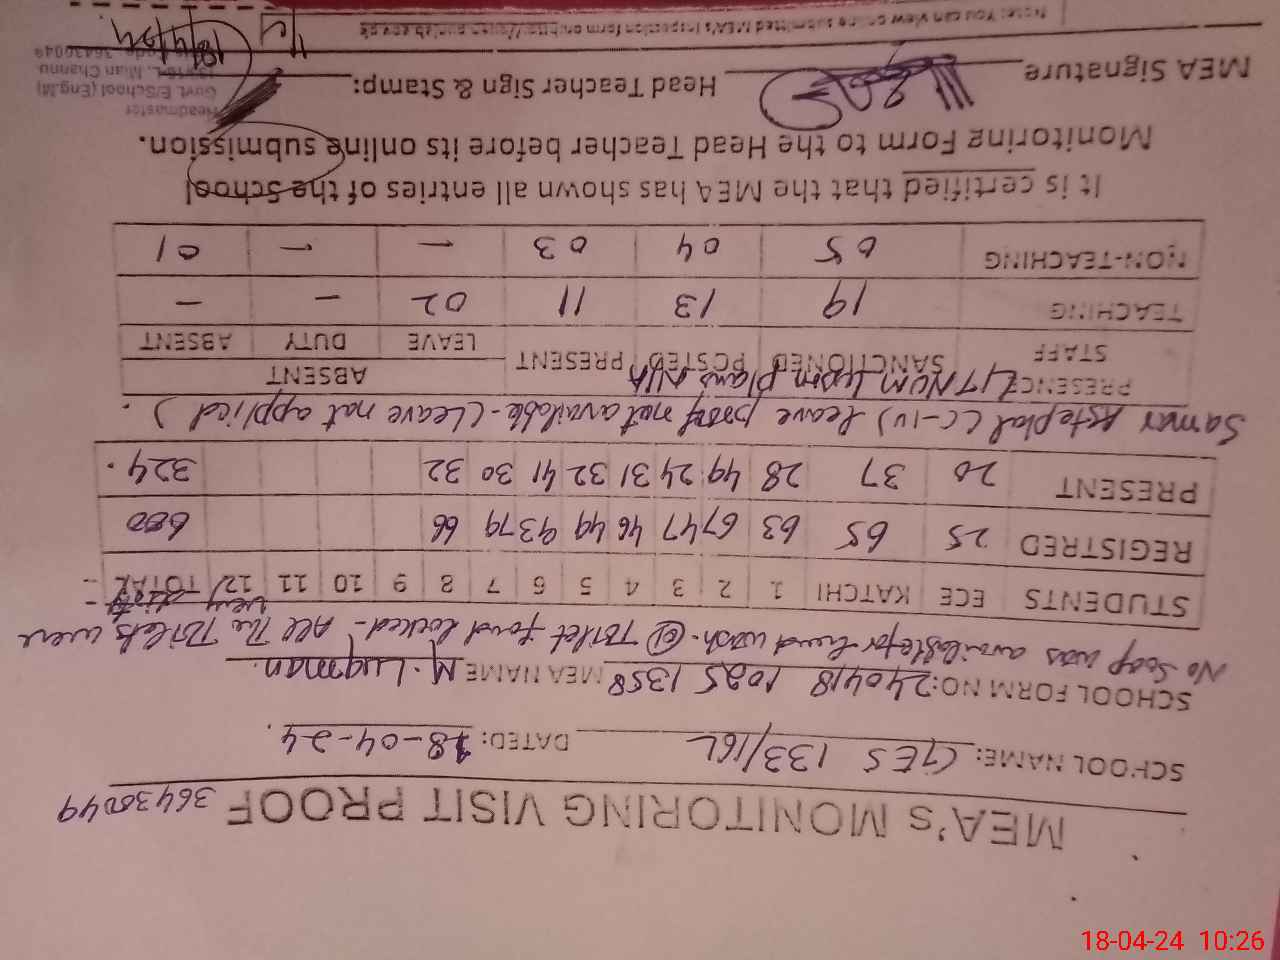 MEA's MONITORING VISIT PROOF 36430049
SCHOOL NAME: GES 133/16L DATED: 18-04-24.
SCHOOL FORM NO: 240418 1025 1358 MEA NAME M. Luqman.
No Soap was available for hand wash. @ Toilet found locked - All The Toilets were
very dirty -
STUDENTS ECE KATCHI 1 2 3 4 5 6 7 8 9 10 11 12 TOTAL
REGISTRED 25 65 63 67 47 46 49 93 79 66 600
PRESENT 20 37 28 49 24 31 32 41 30 32 324.
leave proof not available - (Leave not applied).
PRESENCE plans N/A
STAFF SANCTIONED POSTED PRESENT ABSENT
LEAVE DUTY ABSENT
TEACHING 19 13 11 02 - -
NON-TEACHING 05 04 03 - - 01
It is certified that the MEA has shown all entries of the School
Monitoring Form to the Head Teacher before its online submission.
MEA Signature Head Teacher Sign & Stamp:
Headmaster
Govt. E/School (Eng.M)
133/16-L, Mian Channu
36430049
18/4/24
Note: You can view online submitted MEA's inspection form on
18-04-24 10:26